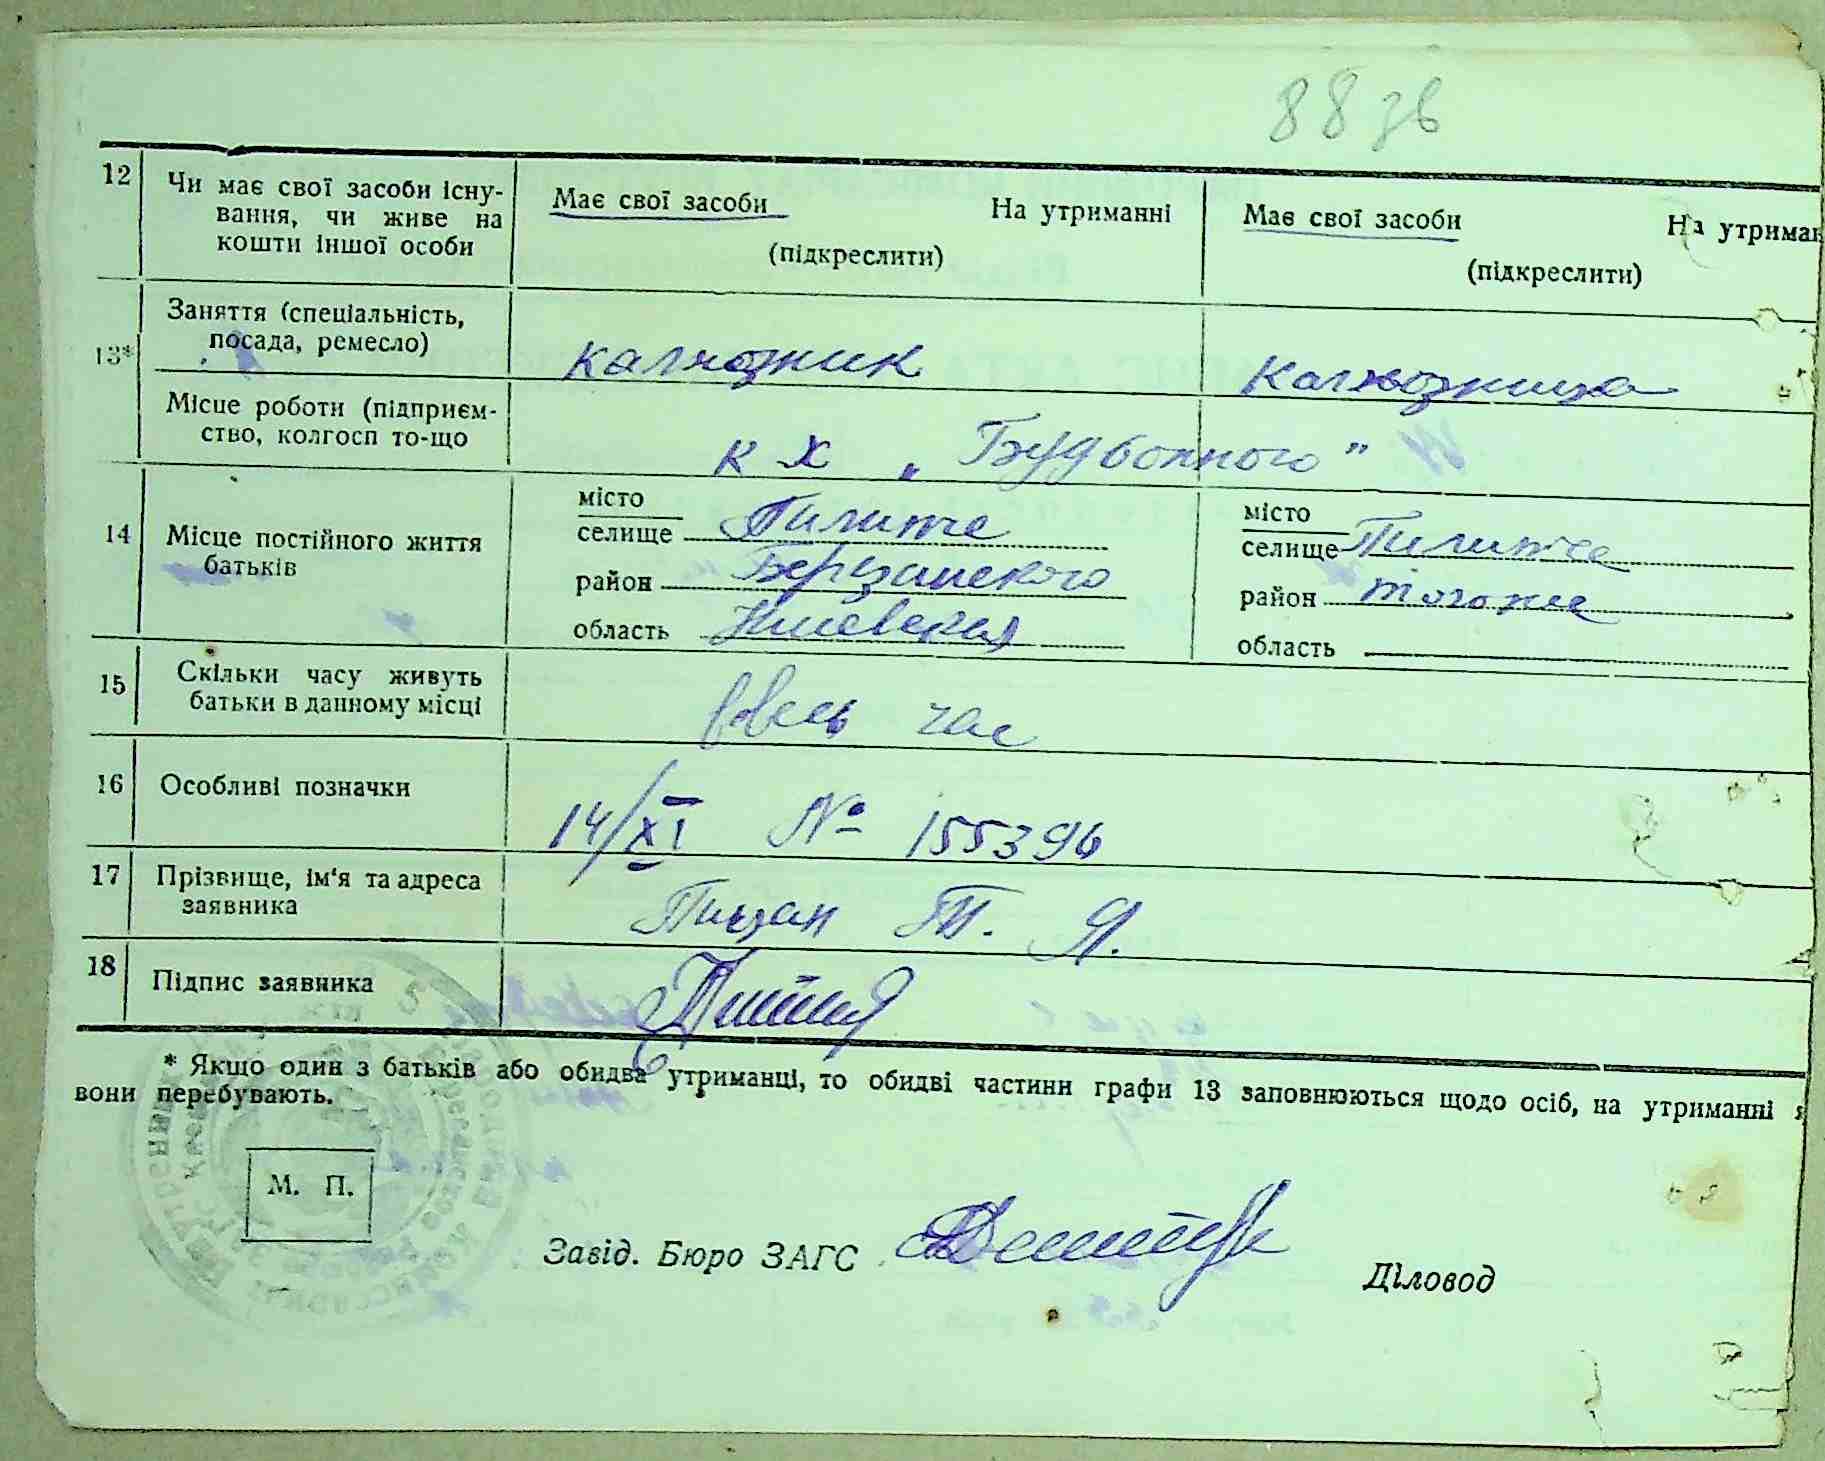 88 зв
12 Чи має свої засоби існу-
вання, чи живе на
кошти іншої особи
Має свої засоби На утриманні
(підкреслити)
Має свої засоби На утриман
(підкреслити)
13* Заняття (спеціальність,
посада, ремесло)
колхозник
колхозница
Місце роботи (підприєм-
ство, колгосп то-що
к х „
14 Місце постійного життя
батьків
місто
селище Пилипче
район
область Киевская
місто
селище Пилипче
район тогоже
область
15 Скільки часу живуть
батьки в данному місці
ввесь час
16 Особливі позначки
14/XI № 155394
17 Прізвище, ім‘я та адреса
заявника
Т. Я.
18 Підпис заявника
* Якщо один з батьків або обидва утриманці, то обидві частини графи 13 заповнюються щодо осіб, на утриманні я
вони перебувають.
М. П.
Завід. Бюро ЗАГС
Діловод